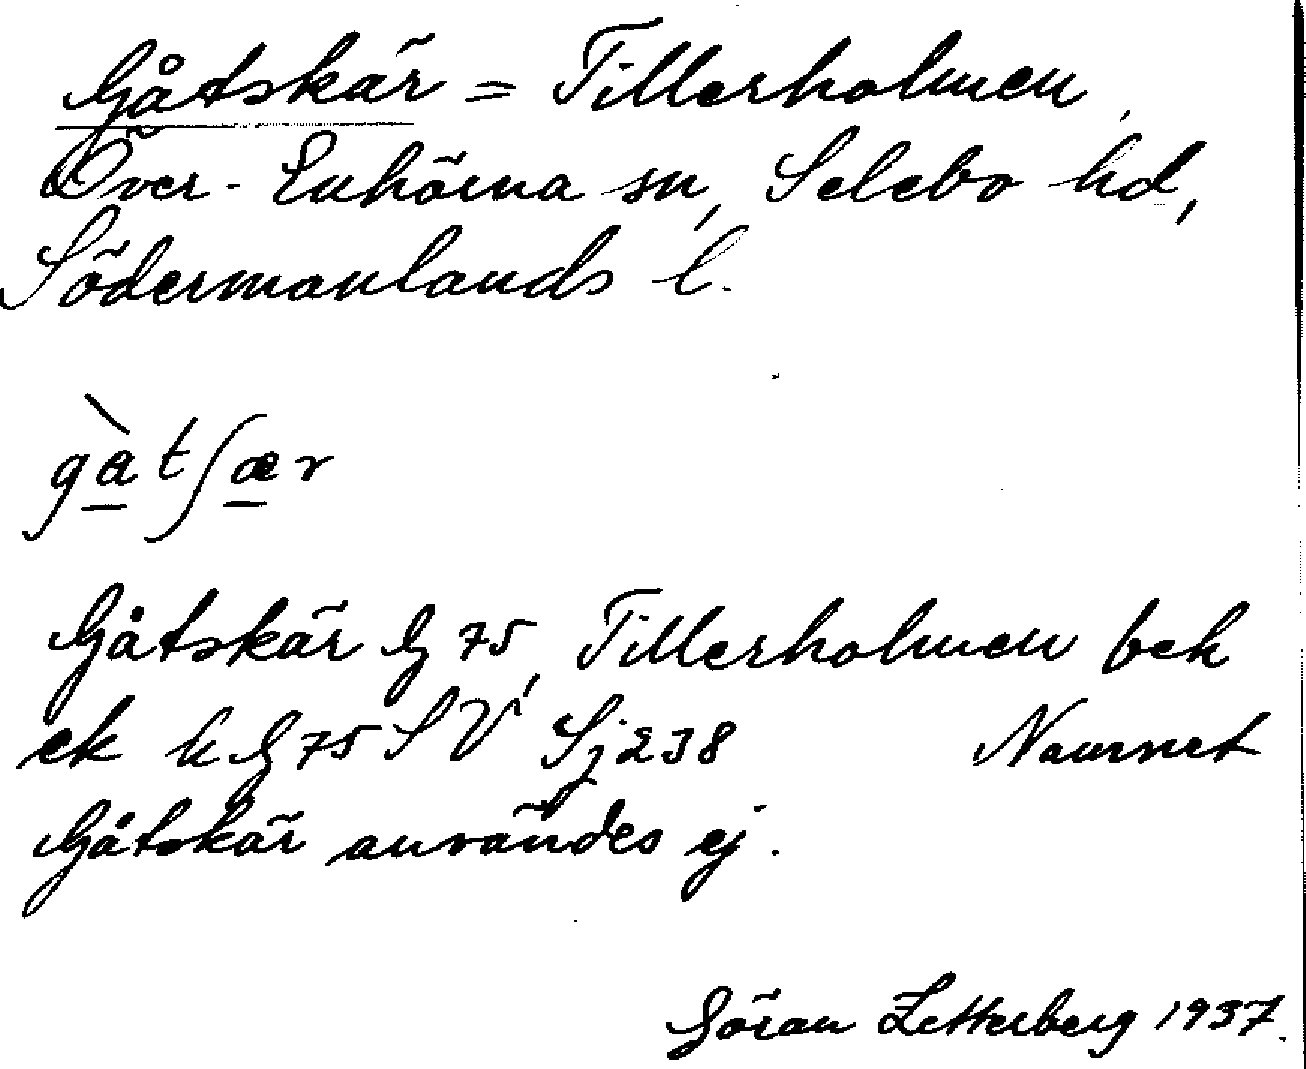 Gåtskär = Tillerholmen,
Över-Enhörna sn, Selebo hd,
Södermanlands l.
gàtʃær
Gåtskär G 75, Tillerholmen bek
ek k G 75 SV Sj 238 Namnet
Gåtskär användes ej.
Göran Zetterberg 1937.